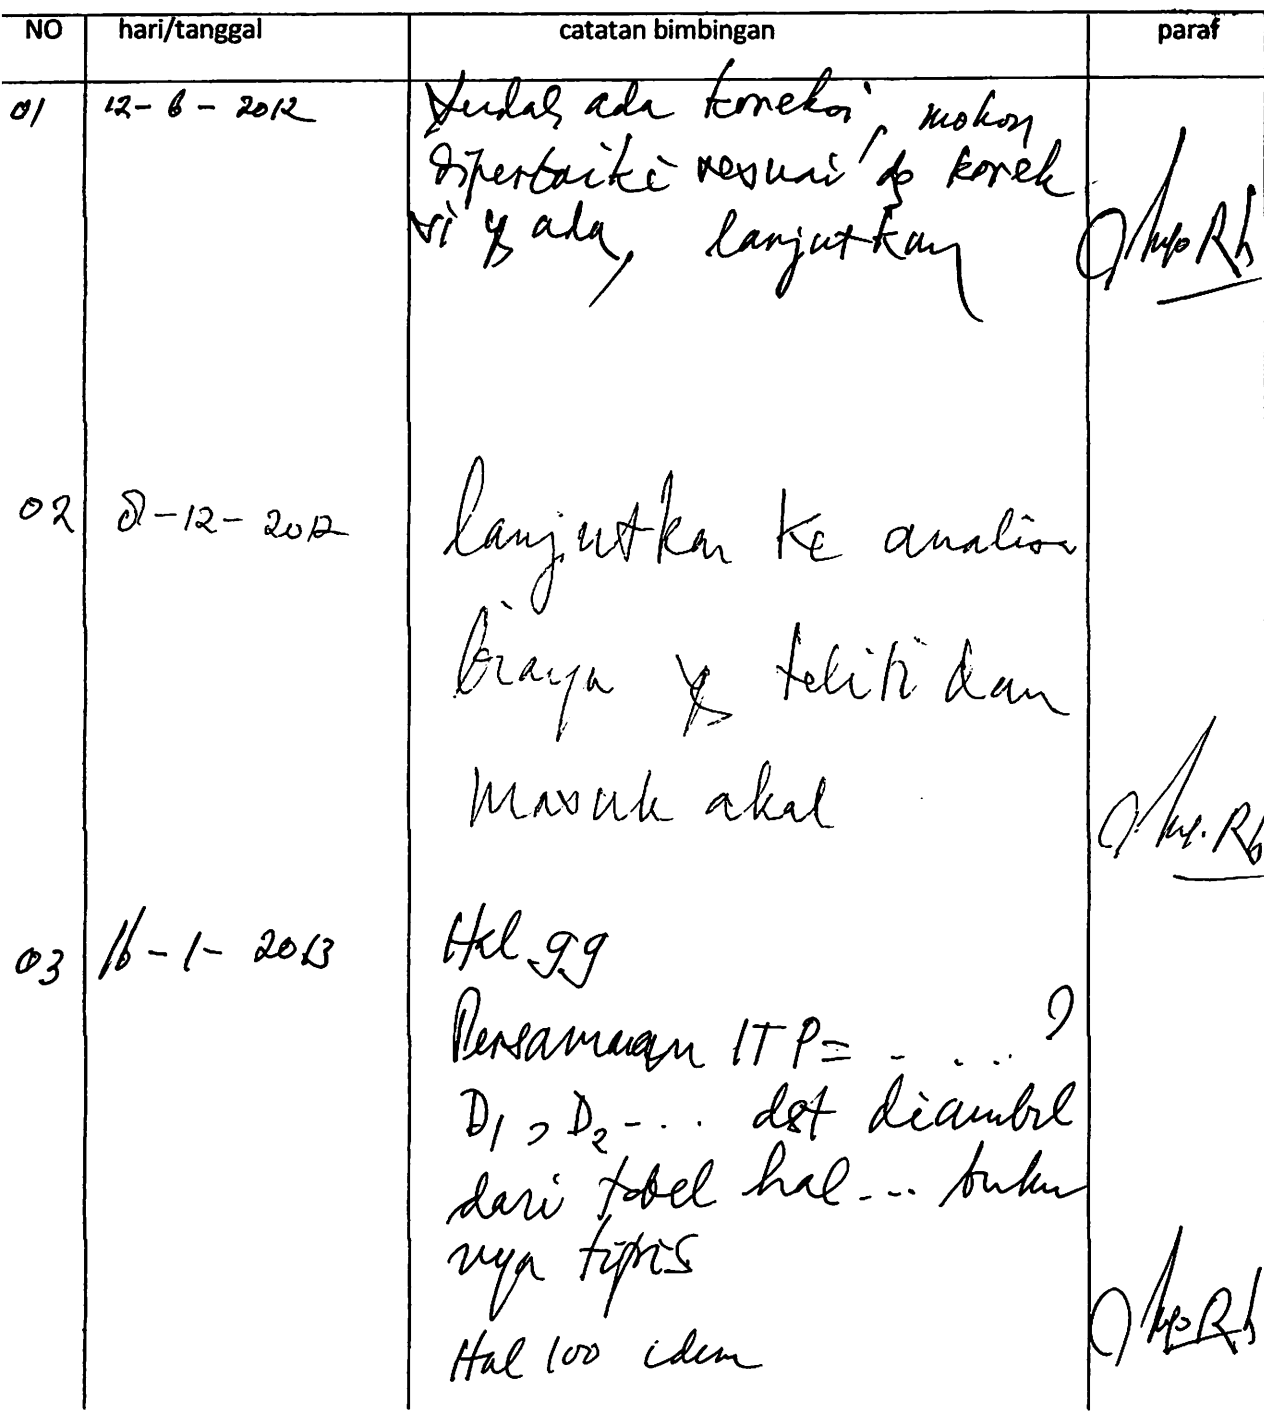 NO hari/tanggal catatan bimbingan paraf
01 12-6-2012 Sudah ada koreksi, mohon
diperbaiki sesuai dg korek
si yg ada, lanjutkan
02 8-12-2012 lanjutkan ke analisa
biaya yg teliti dan
masuk akal
03 16-1-2013 Hal 99
Persamaan ITP= - . . . ?
D1, D2 - . . . dst diambil
dari tabel hal... buku
nya tipis
Hal 100 idem